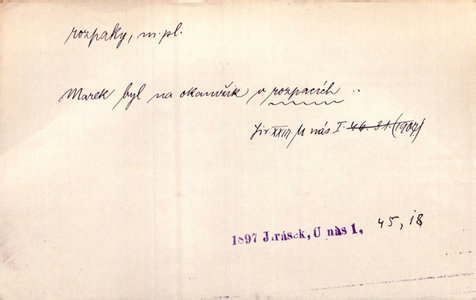 rozpaky, m. pl.
Marek byl na okamžik v rozpacích ..
Jir. XXIII, U nás I. 46. 31. (1907)
1897 Jirásek, U nás 1, 45, 18